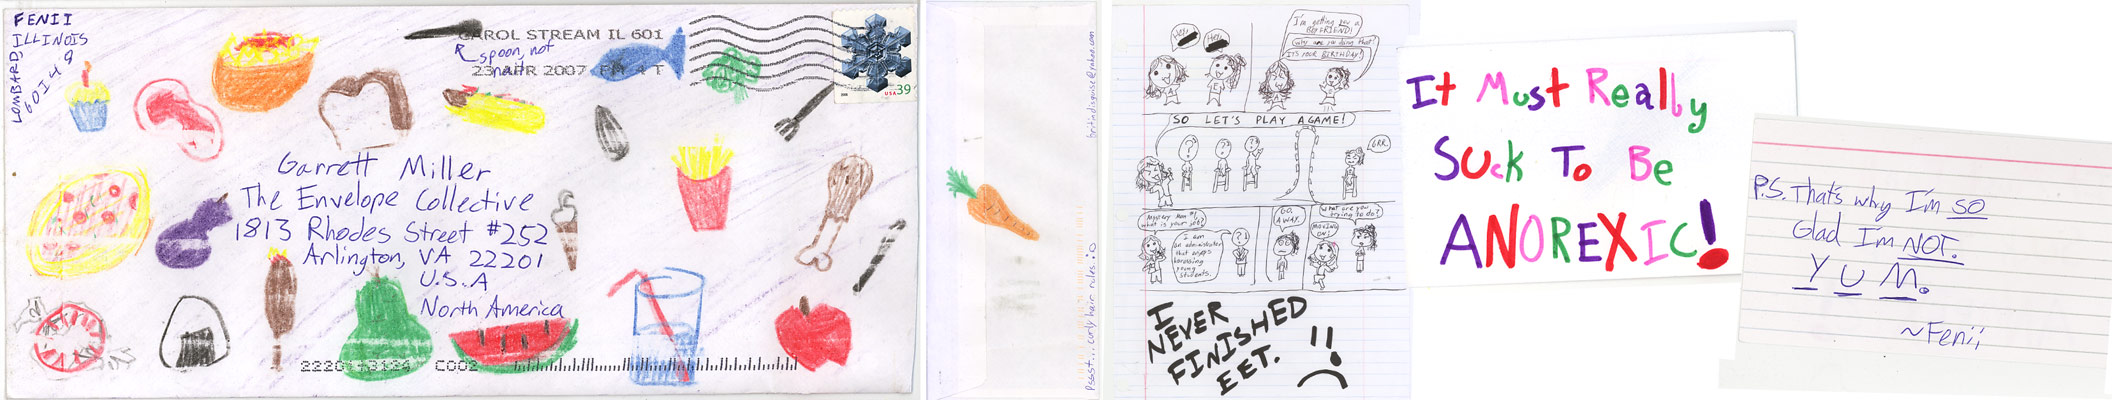 FENII
LOMBARD, ILLINOIS
60149
CAROL STREAM IL 601
23 APR 2007 PM 4 T
spoon, not
USA 39
Garrett Miller
The Envelope Collective
1813 Rhodes Street #252
Arlington, VA 22201
U.S.A
North America
C002
Pssst... curly hair rules. :D
I'm getting you a
BOYFRIEND!
Why are you doing that?
IT'S YOUR BIRTHDAY!
SO LET'S PLAY A GAME!
GRR.
Mystery Man #1,
what is your job?
I am
an administrator
that enjoys
harassing
young
students.
GO
AWAY.
MOVING
ON!
What are you
trying to do?
I
NEVER
FINISHED
EET.
It Must Really
Suck To Be
ANOREXIC!
P.S. That's why I'm SO
Glad I'm NOT.
YUM.
~Fenii